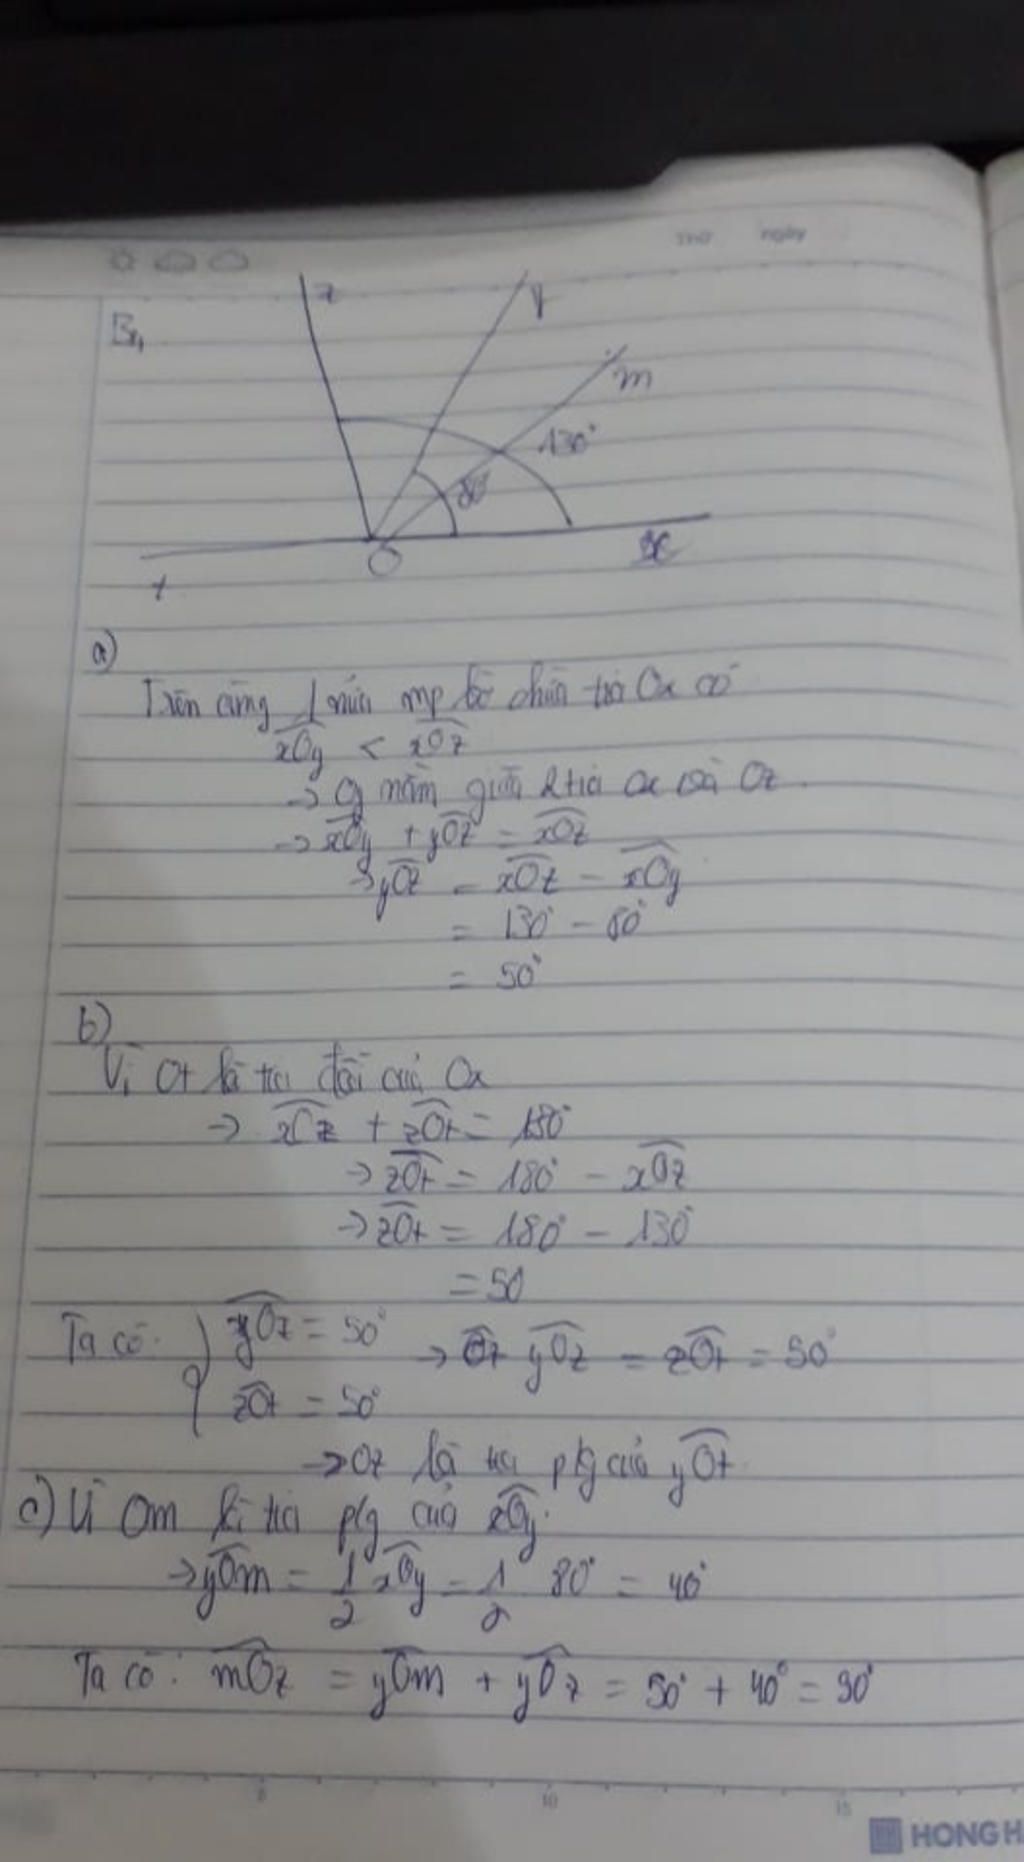 Thứ ngày
B4,
z
y
m
130°
80°
x
O
t
a)
Trên cùng 1 nửa mp bờ chứa tia Ox có
xOy < xOz
→ Oy nằm giữa 2 tia Ox và Oz.
→ xOy + yOz = xOz
→ yOz = xOz - xOy
= 130° - 80°
= 50°
b)
Vì Ot là tia đối của Ox
→ xOz + zOt = 180°
→ zOt = 180° - xOz
→ zOt = 180° - 130°
= 50
Ta có: yOz = 50°
zOt = 50°
→ yOz = zOt = 50°
→ Oz là tia p/g của yOt
c) Vì Om là tia p/g của xOy.
→ yOm = 1/2 xOy = 1/2 80° = 40°
Ta có: mOz = yOm + yOz = 50° + 40° = 90°
5 10 15
HONG H